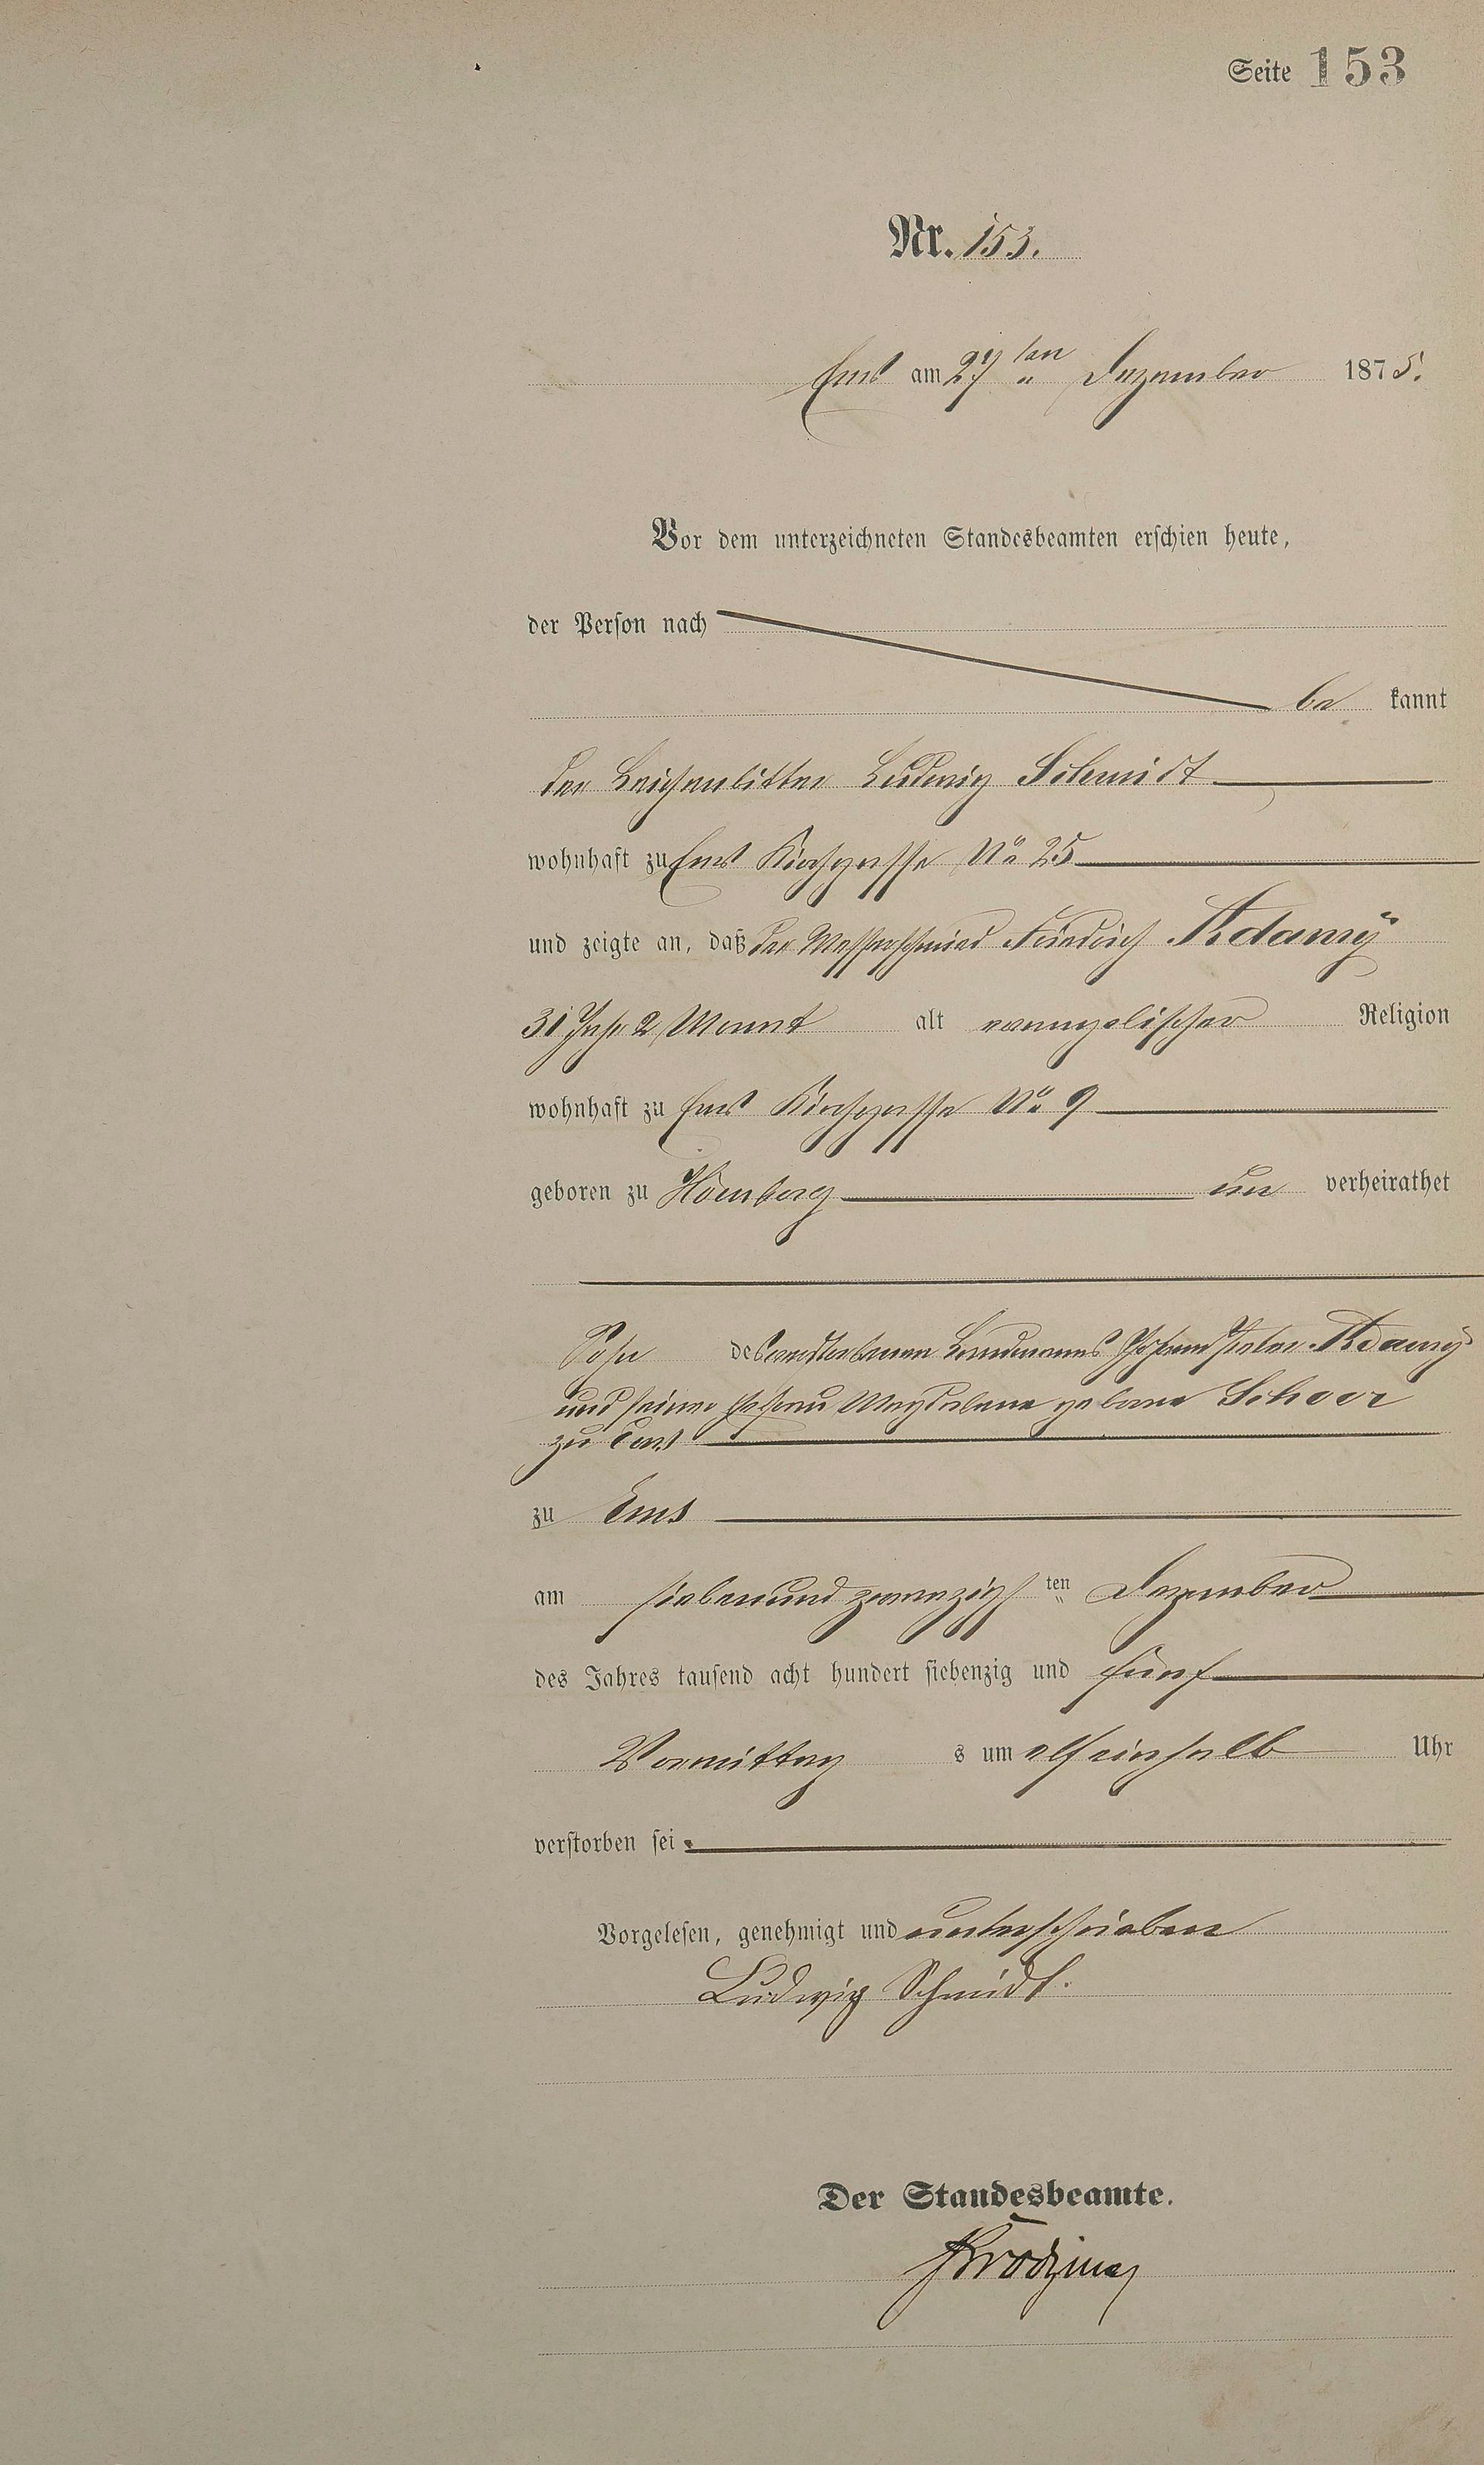 Seite 153
Nr. 153.
Ems am 27ten Dezember 1875.
Vor dem unterzeichneten Standesbeamten erschien heute,
der Person nach
be kannt
der Leichenbitter Ludwig Schmidt
wohnhaft zu Ems Kirchgasse No 25
und zeigte an, daß der Messerschmied Friedrich Adamÿ
31 Jahr 2 Monat alt evangelischer Religion
wohnhaft zu Ems Kirchgasse No 9
geboren zu Hömberg un verheirathet
Sohn des verstorbenen Landmanns Johann Peter Adamy
und seiner Ehefrau Magdalena geborne Schoor
zu Ems
zu Ems
am siebenundzwanzigsten Dezember
des Jahres tausend acht hundert siebenzig und fünf
Vormittag s um elfeinhalb Uhr
verstorben sei.
Vorgelesen, genehmigt und unterschrieben
Ludwig Schmidt.
Der Standesbeamte.